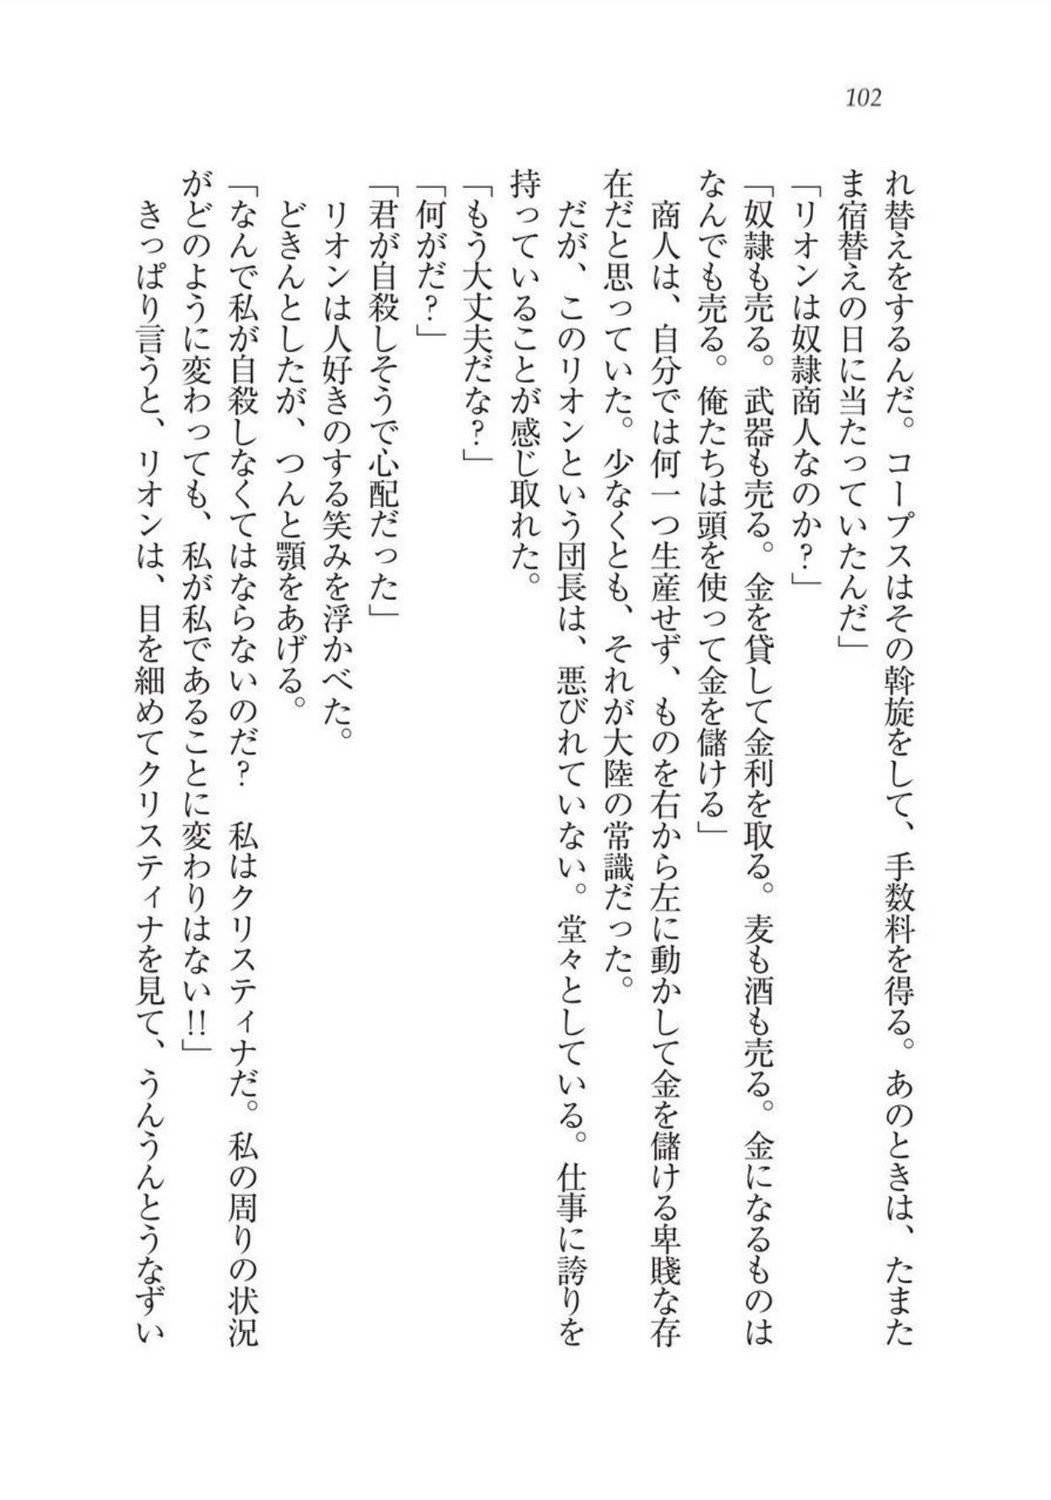 102
れ替えをするんだ。コープスはその斡旋をして、手数料を得る。あのときは、たまた
ま宿替えの日に当たっていたんだ」
「リオンは奴隷商人なのか？」
「奴隷も売る。武器も売る。金を貸して金利を取る。麦も酒も売る。金になるものは
なんでも売る。俺たちは頭を使って金を儲ける」
　商人は、自分では何一つ生産せず、ものを右から左に動かして金を儲ける卑賤な存
在だと思っていた。少なくとも、それが大陸の常識だった。
　だが、このリオンという団長は、悪びれていない。堂々としている。仕事に誇りを
持っていることが感じ取れた。
「もう大丈夫だな？」
「何がだ？」
「君が自殺しそうで心配だった」
　リオンは人好きのする笑みを浮かべた。
　どきんとしたが、つんと顎をあげる。
「なんで私が自殺しなくてはならないのだ？　私はクリスティナだ。私の周りの状況
がどのように変わっても、私が私であることに変わりはない!!」
　きっぱり言うと、リオンは、目を細めてクリスティナを見て、うんうんとうなずい